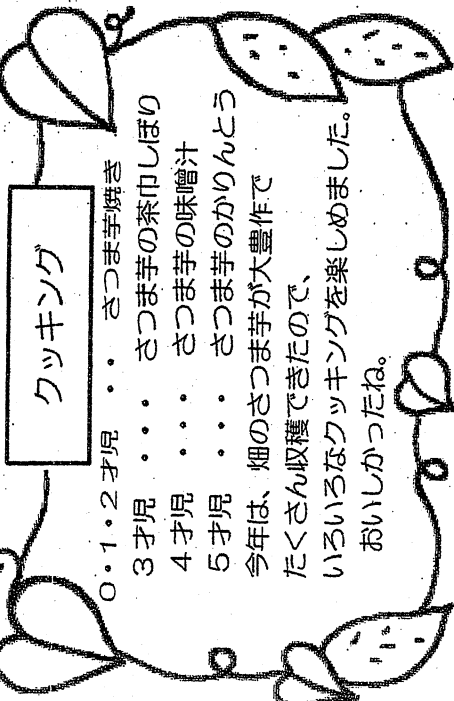 クッキング
０・１・２才児　・・・　さつま芋焼き
３才児　・・・　さつま芋の茶巾しぼり
４才児　・・・　さつま芋の味噌汁
５才児　・・・　さつま芋のかりんとう
今年は、畑のさつま芋が大豊作で
たくさん収穫できたので、
いろいろなクッキングを楽しめました。
おいしかったね。